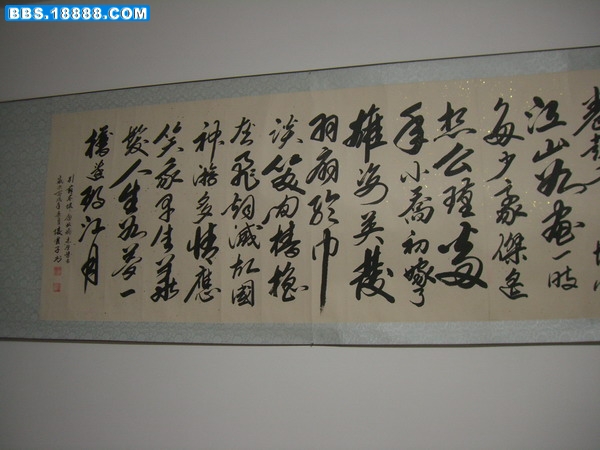 BBS.18888.COM
卷起
江山如畫一時
多少豪傑遙
想公瑾當
年小喬初嫁了
雄姿英發
羽扇綸巾
談笑間檣櫓
灰飛烟滅故國
神游多情應
笑我早生華
髮人生如夢一
樽還酹江月